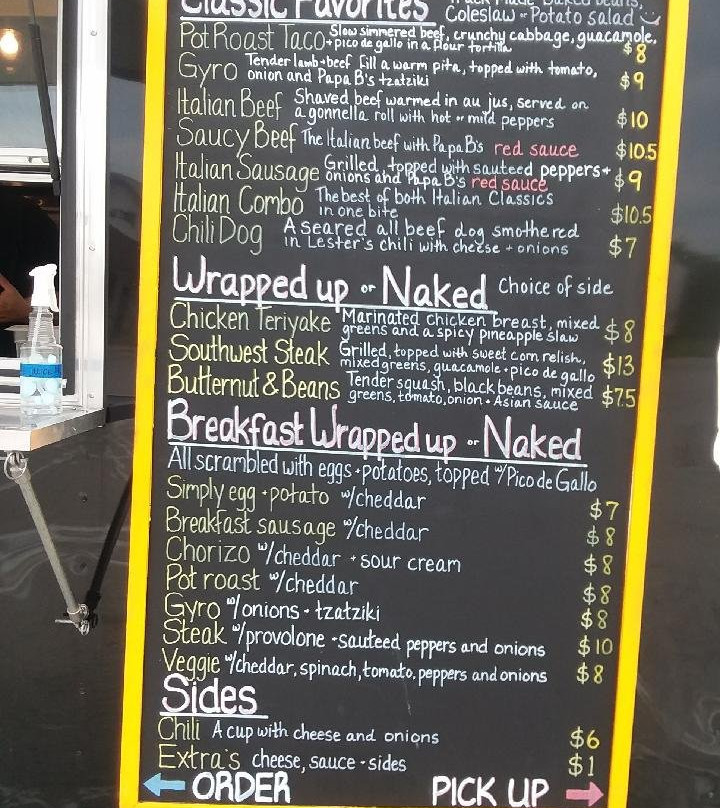 Classic Favorites
Coleslaw - Potato salad
Pot Roast Taco Slow simmered beef, crunchy cabbage, guacamole,
+pico de gallo in a flour tortilla $8
Gyro Tender lamb+beef fill a warm pita, topped with tomato,
onion and Papa B's tzatziki $9
Italian Beef Shaved beef warmed in au jus, served on
a gonnella roll with hot or mild peppers $10
Saucy Beef The Italian beef with Papa B's red sauce $10.5
Italian Sausage Grilled, topped with sauteed peppers+
onions and Papa B's red sauce $9
Italian Combo The best of both Italian Classics
in one bite $10.5
Chili Dog A seared all beef dog smothered
in Lester's chili with cheese + onions $7
Wrapped up or Naked Choice of side
Chicken Teriyake Marinated chicken breast, mixed
greens and a spicy pineapple slaw $8
Southwest Steak Grilled, topped with sweet corn relish,
mixed greens, guacamole + pico de gallo $13
Butternut & Beans Tender squash, black beans, mixed
greens, tomato, onion + Asian sauce $7.5
Breakfast Wrapped up or Naked
All scrambled with eggs + potatoes, topped w/Pico de Gallo
Simply egg + potato w/cheddar $7
Breakfast sausage w/cheddar $8
Chorizo w/cheddar + sour cream $8
Pot roast w/cheddar $8
Gyro w/onions + tzatziki $8
Steak w/provolone + sauteed peppers and onions $10
Veggie w/cheddar, spinach, tomato, peppers and onions $8
Sides
Chili A cup with cheese and onions $6
Extra's cheese, sauce - sides $1
ORDER PICK UP